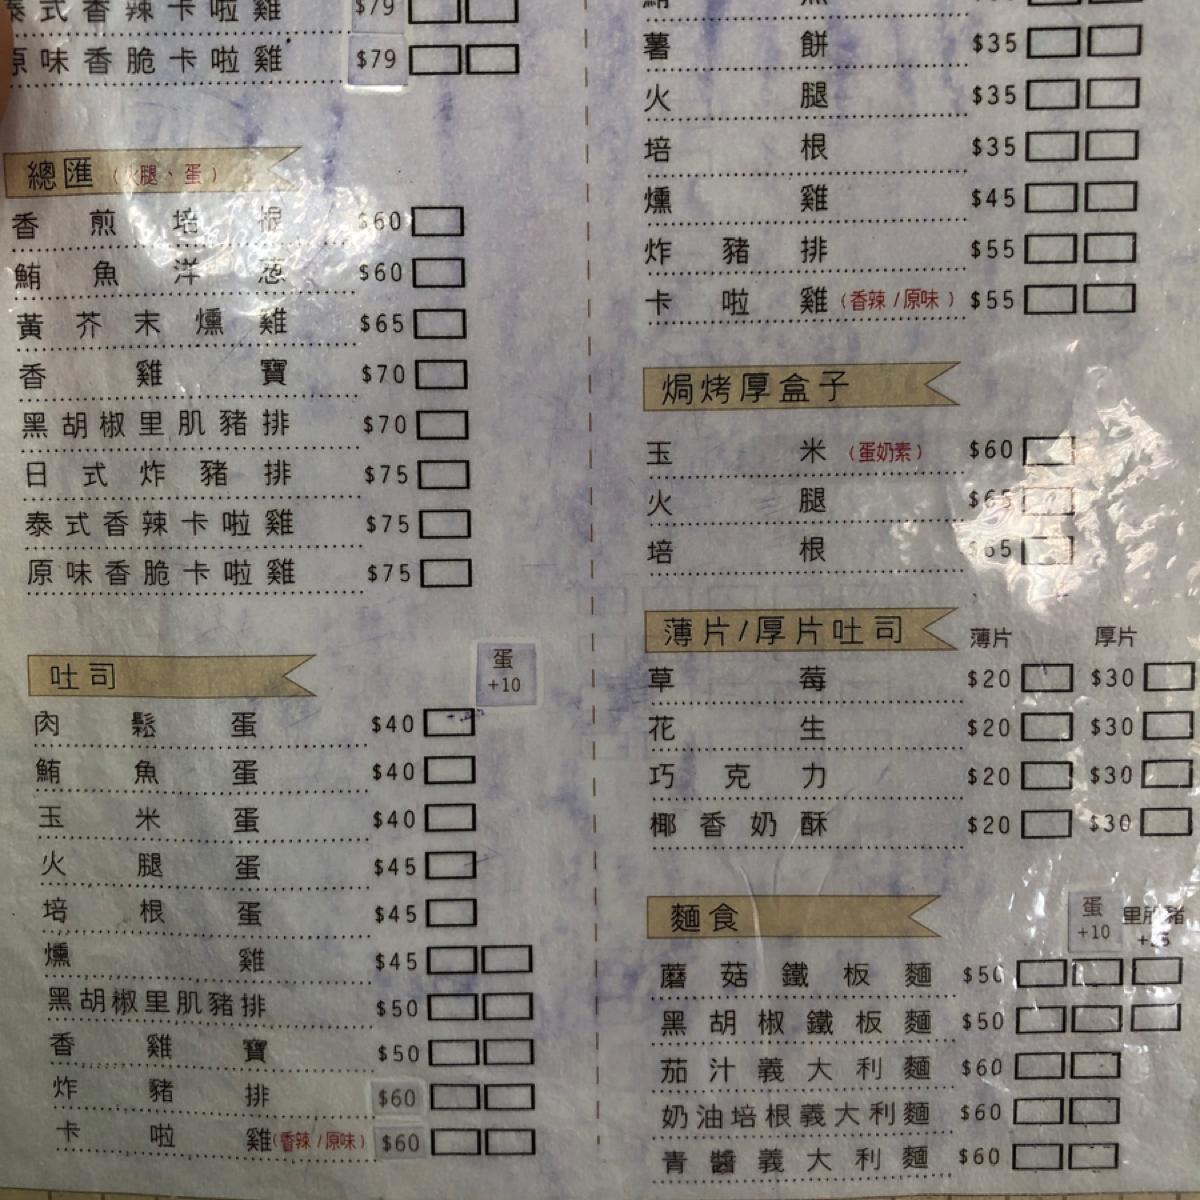 泰式香辣卡啦雞 $79
原味香脆卡啦雞 $79
總匯(火腿、蛋)
香煎培根 $60
鮪魚洋蔥 $60
黃芥末燻雞 $65
香雞寶 $70
黑胡椒里肌豬排 $70
日式炸豬排 $75
泰式香辣卡啦雞 $75
原味香脆卡啦雞 $75
吐司
蛋
+10
肉鬆蛋 $40
鮪魚蛋 $40
玉米蛋 $40
火腿蛋 $45
培根蛋 $45
燻雞 $45
黑胡椒里肌豬排 $50
香雞寶 $50
炸豬排 $60
卡啦雞(香辣/原味) $60
薯餅 $35
火腿 $35
培根 $35
燻雞 $45
炸豬排 $55
卡啦雞(香辣/原味) $55
焗烤厚盒子
玉米(蛋奶素) $60
火腿 $65
培根 $65
薄片/厚片吐司 薄片 厚片
草莓 $20 $30
花生 $20 $30
巧克力 $20 $30
椰香奶酥 $20 $30
麵食
蛋
+10
里肌豬
蘑菇鐵板麵 $50
黑胡椒鐵板麵 $50
茄汁義大利麵 $60
奶油培根義大利麵 $60
青醬義大利麵 $60